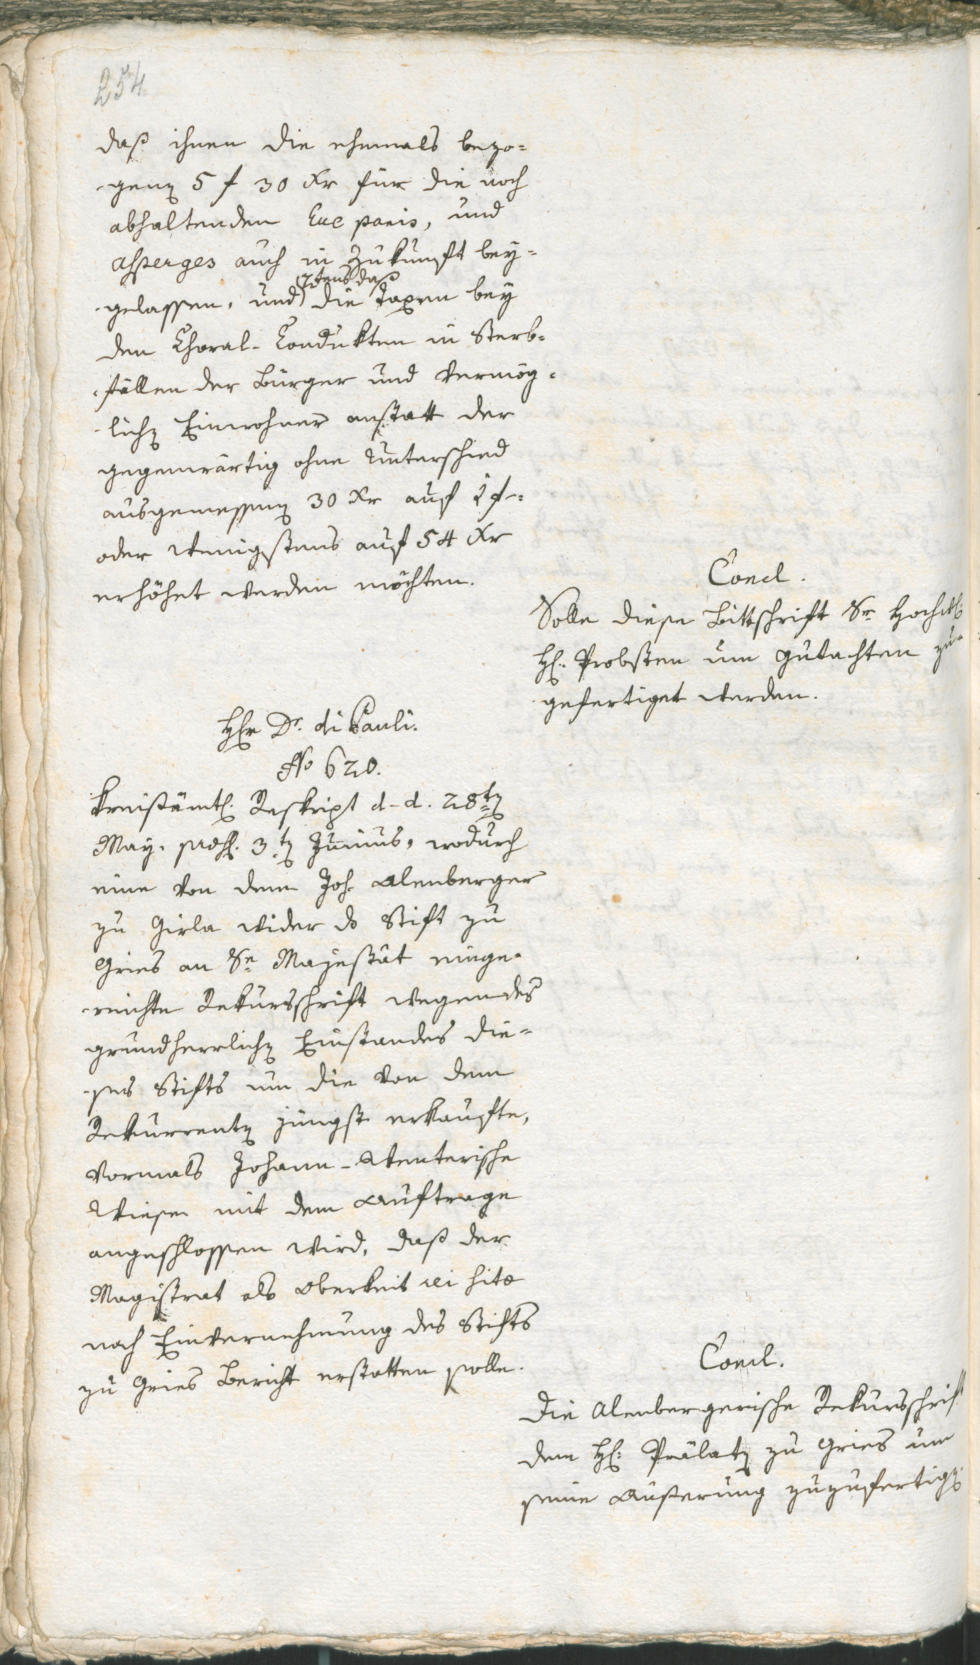 254
daß ihnen die ehemals bezo-
genen 5 f 30 Xr für die noch
abhaltenden Ecce panis, und
Asperges auch in Zukunft bey-
gelassen, und 2tens daß die Taxen bey
den Choral-Condukten in Sterb-
fällen der Bürger und vermög-
lichen Einwohner anstatt der
gegenwärtig ohne Unterschied
ausgemessenen 30 Xr auf 1 f
oder wenigstens auf 54 Xr
erhöhet werden möchten.
Concl.
Solle diese Bittschrift Sr
H. Probsten um Gutachten zu-
gefertiget werden.
Hr Dr. di Pauli.
No 620.
Kreisämtl. Reskript d. d. 28ten
May, 3ten Junius, wodurch
eine von dem Joh. Alenberger
zu Girla wider ds Stift zu
Gries an Se Majestät einge-
reichte Rekursschrift wegen des
grundherrlichen Einstandes die-
ses Stifts um die von dem
Rekurrenten jüngst erkaufte,
vormals Johann-
Wiese mit dem Auftrage
angeschlossen wird, daß der
Magistrat als Oberkeit rei sitae
nach Einvernehmung des Stifts
zu Gries Bericht erstatten solle.
Concl.
Die Alenbergerische Rekursschrift
dem H. Prälaten zu Gries um
seine Äußerung zuzufertigen.